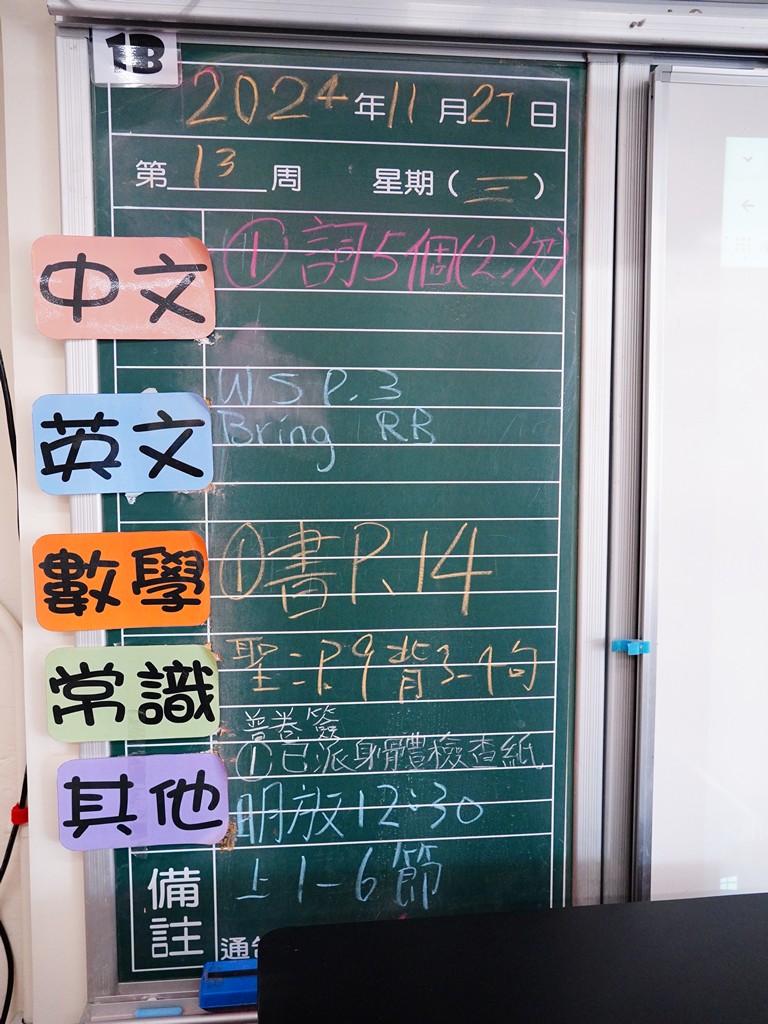 1B
2024年11月27日
第13周 星期(三)
中文
①詞5個(2次)
英文
WS P.3
Bring RB
數學
①書P.14
常識
聖:P9背3-4句
普卷簽
①已派身體檢查紙
其他
明放12:30
上1-6節
備註
通告